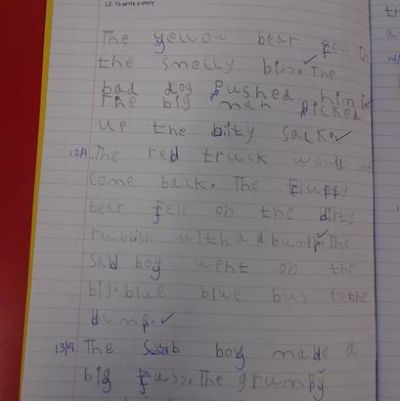 LO: To write a story
The yellow bear fell in
the smelly bin. The
bad dog Pushed him in
The big man Picked
up the dirty sack.
12/9 The red truck would not
Come back. The fluffy
bear fell on the dirty
rubbish with a d bump. The
Sad boy went on the
big. blue blue bus to the
dump.
13/9 The boy made a
big fuss. The grumpy